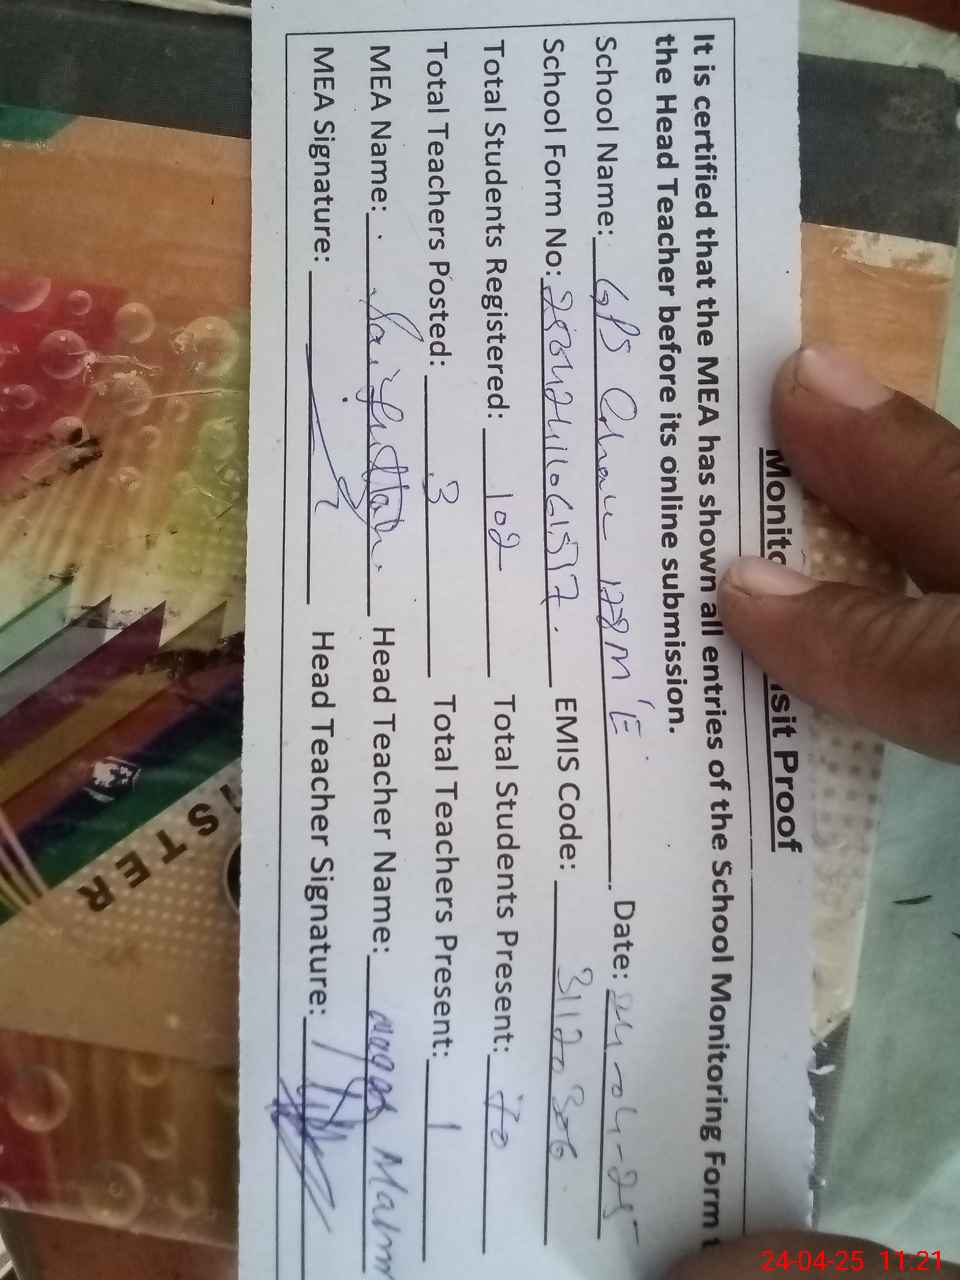 Monito isit Proof
It is certified that the MEA has shown all entries of the School Monitoring Form t
the Head Teacher before its online submission.
School Name: GPS Chak 128m'E Date: 24-04-25
School Form No: EMIS Code: 31120306
Total Students Registered: 102 Total Students Present: 70
Total Teachers Posted: 3 Total Teachers Present: 1
MEA Name: Head Teacher Name:
MEA Signature: Head Teacher Signature:
STER
24-04-25 11:21